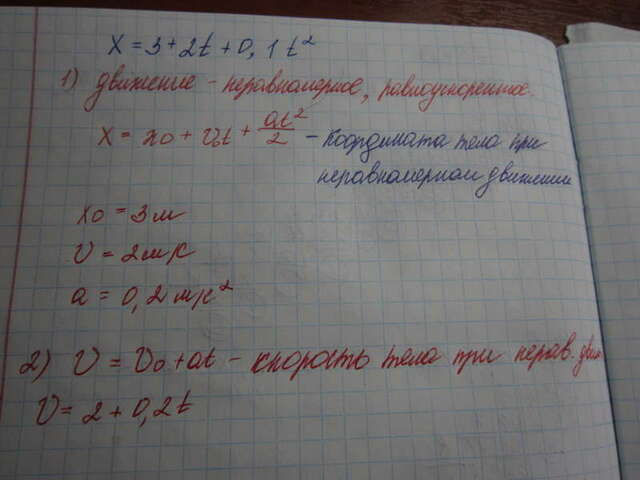 x = 3 + 2t + 0,1t²
1) движение - неравномерное, равноускоренное.
x = x₀ + v₀t + at²/2 - координата тела при
неравномерном движении
x₀ = 3м
v = 2м/с
a = 0,2м/с²
2) v = v₀ + at - скорость тела при нерав. движ
v = 2 + 0,2t